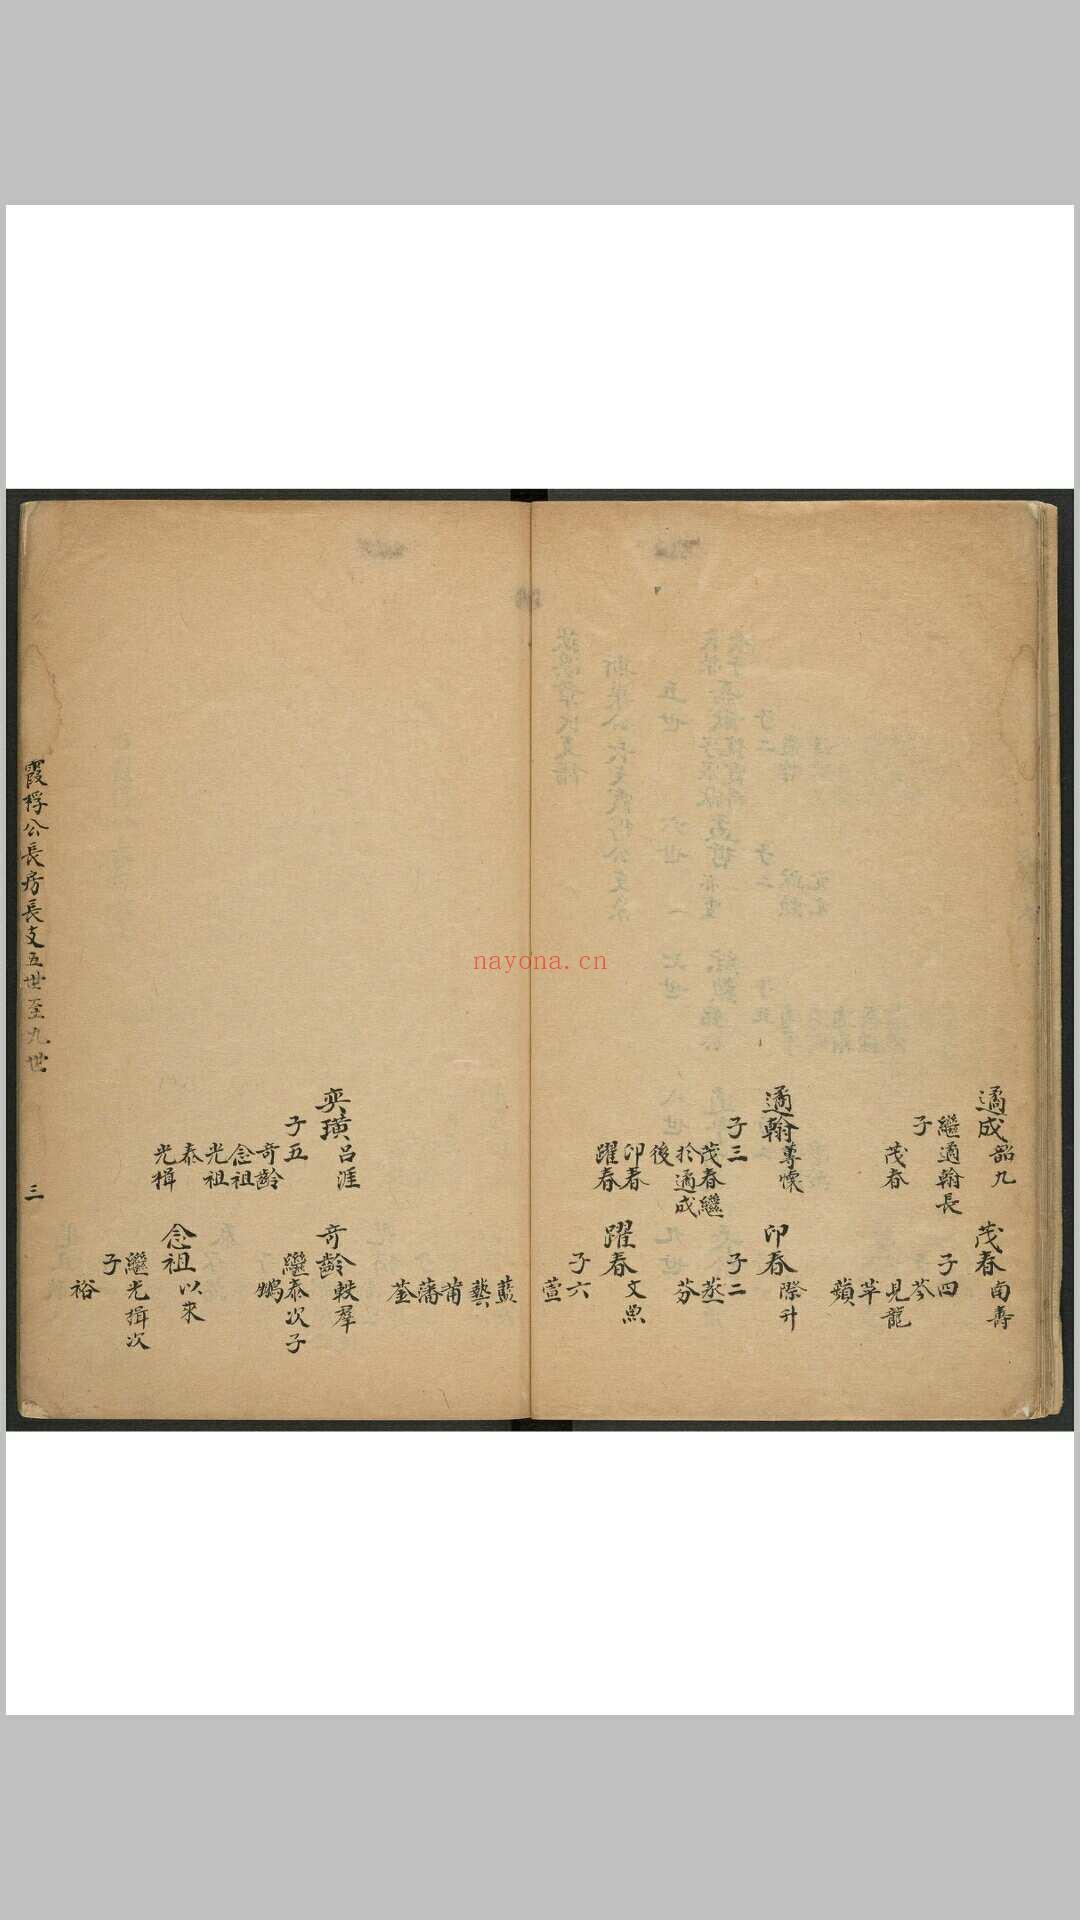 遹成韶九
繼遹翰長
子
茂春
茂春南壽
子四
芩
見龍
苹
蘋
遹翰蓴懷
子三
茂春繼
於遹成
後
印春
躍春
印春際升
子二
蒸
芬
躍春文奧
子六
萱
藍
藝
莆
藩
荃
奕璜呂涯
子五
奇齡
念祖
光祖
泰
光揖
奇齡軼羣
繼泰次子
鵷
念祖以來
繼光揖次
子
裕
霞桴公長房長支五世至九世
三
nayona.cn